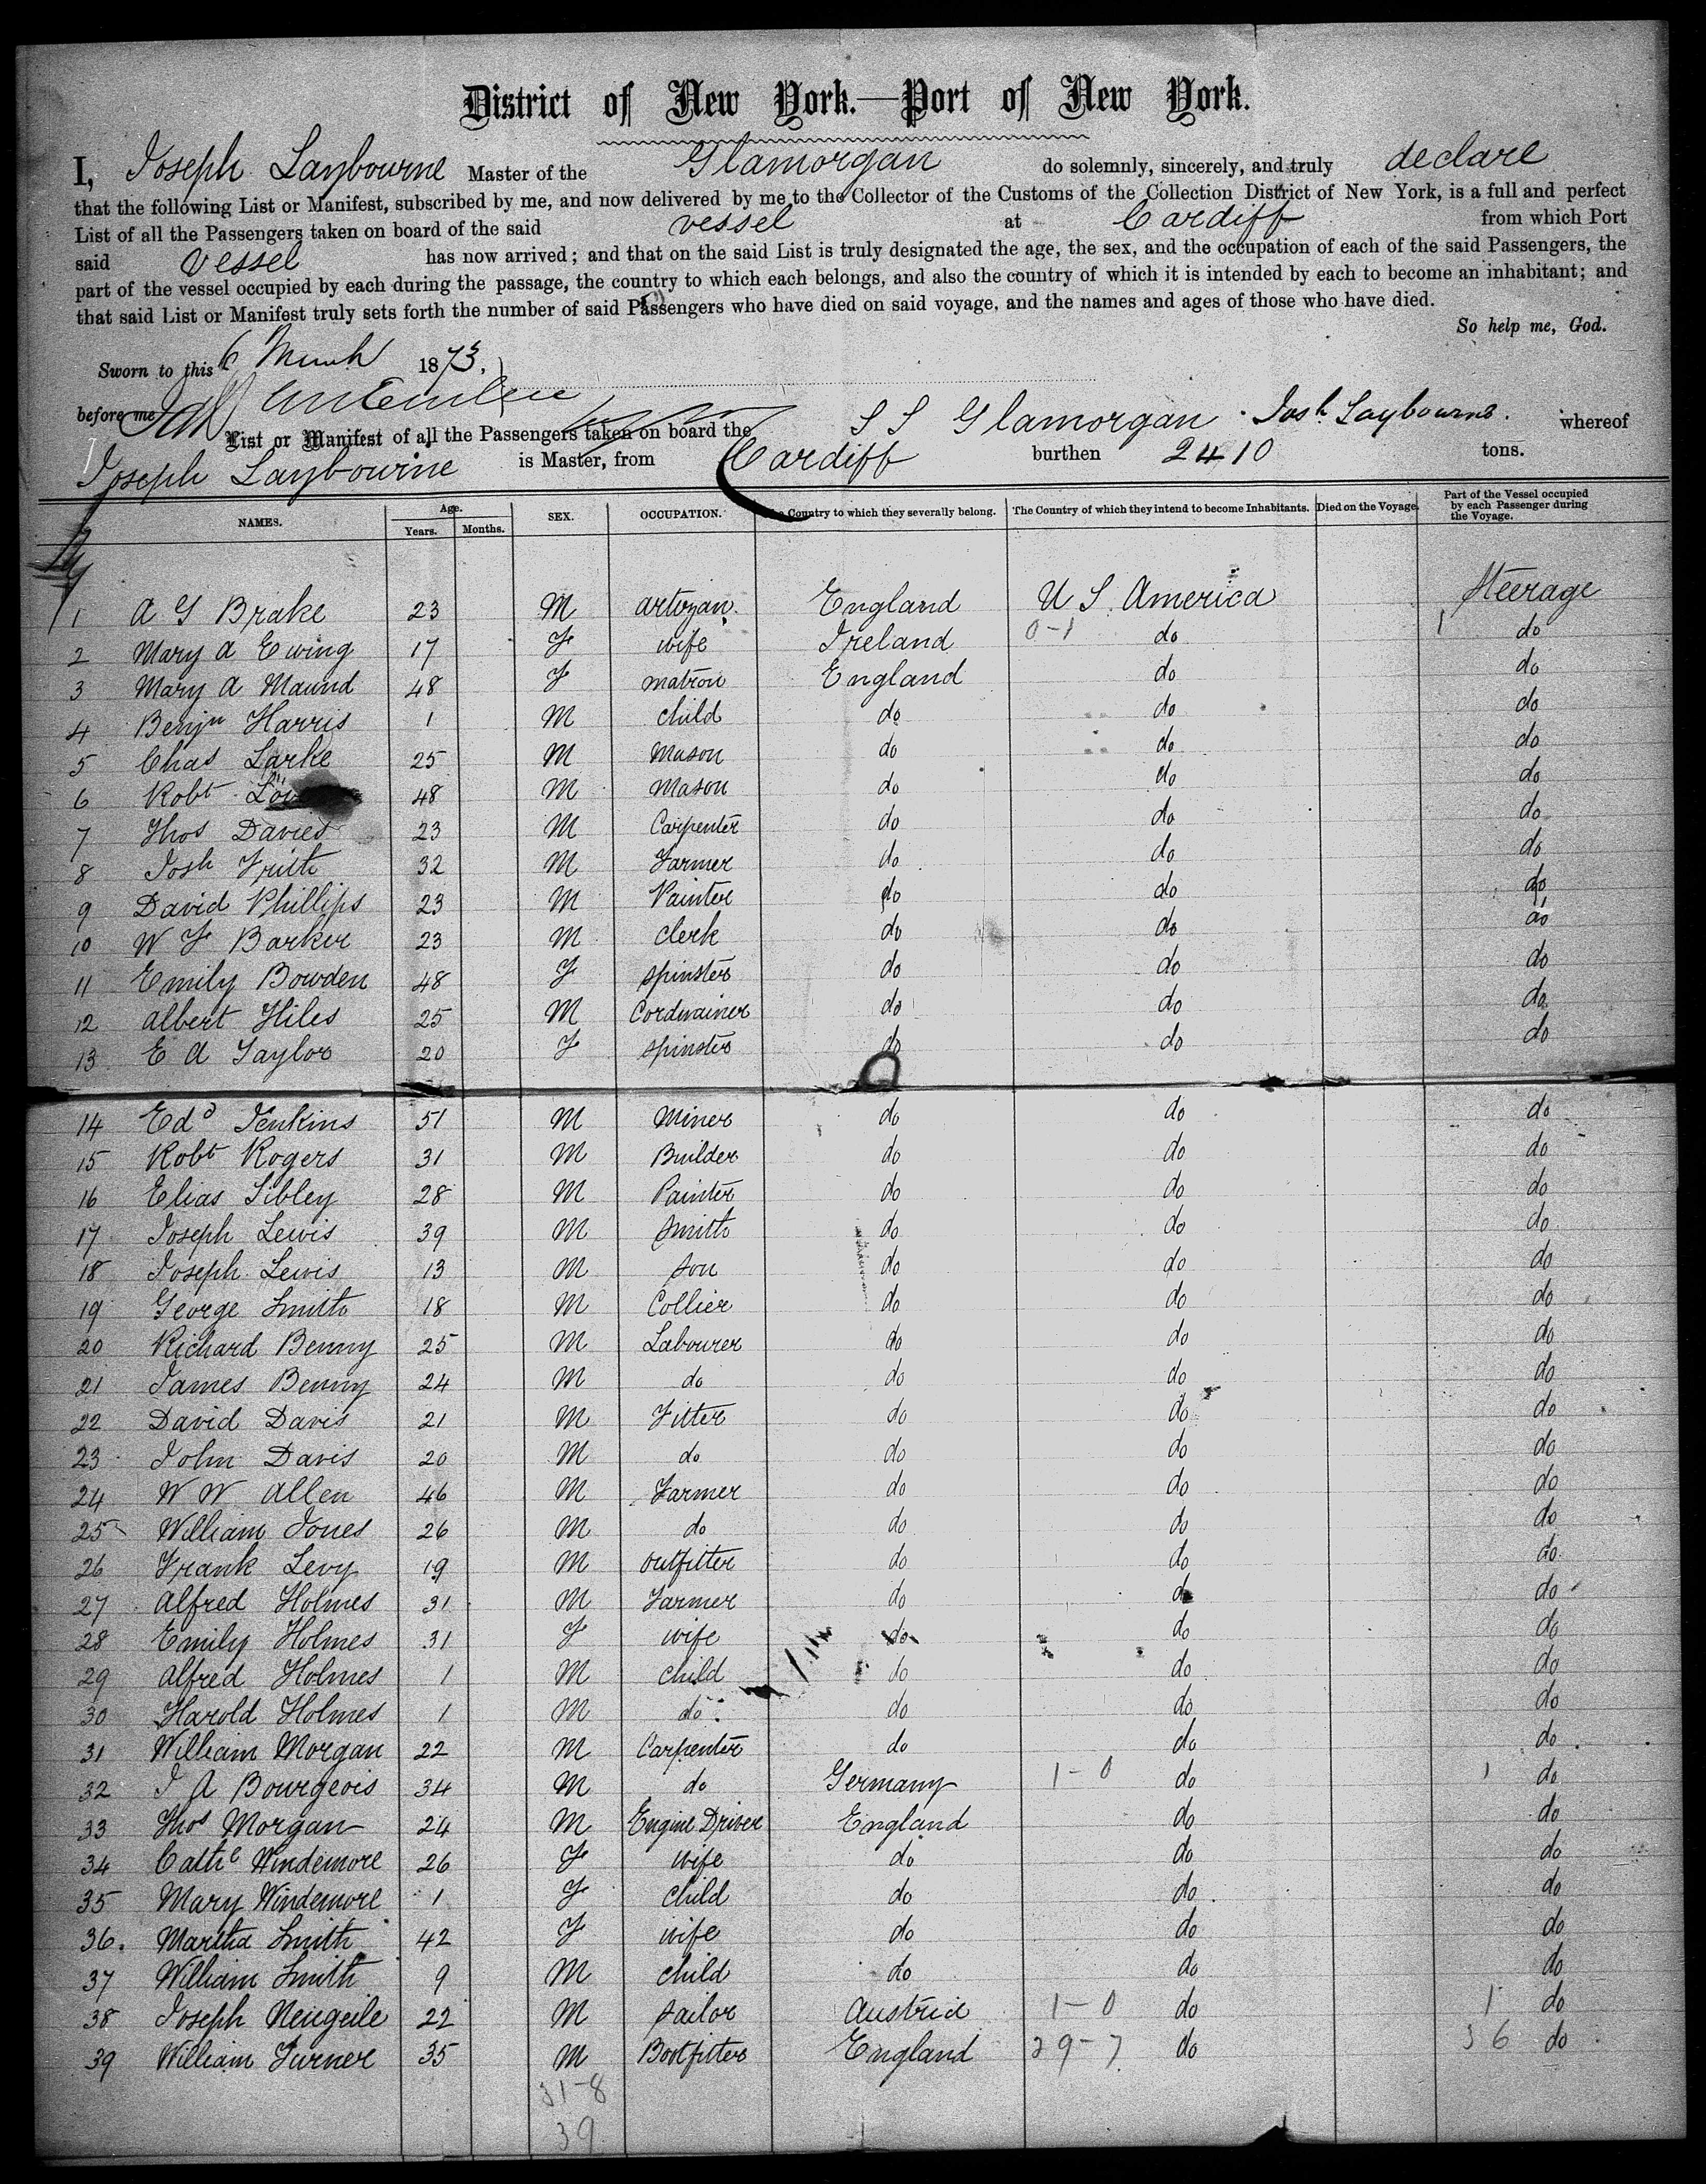 District of New York.—Port of New York.
I, Joseph Laybourne Master of the Glamorgan do solemnly, sincerely, and truly declare
that the following List or Manifest, subscribed by me, and now delivered by me to the Collector of the Customs of the Collection District of New York, is a full and perfect
List of all the Passengers taken on board of the said vessel at Cardiff from which Port
said vessel has now arrived; and that on the said List is truly designated the age, the sex, and the occupation of each of the said Passengers, the
part of the vessel occupied by each during the passage, the country to which each belongs, and also the country of which it is intended by each to become an inhabitant; and
that said List or Manifest truly sets forth the number of said Passengers who have died on said voyage, and the names and ages of those who have died.
So help me, God.
Sworn to this 6 March 1873.
before me
List or Manifest of all the Passengers taken on board the S S Glamorgan Josh Laybourne. whereof
Joseph Laybourne is Master, from Cardiff burthen 2410 tons.
NAMES. Age. Years. Months. SEX. OCCUPATION. The Country to which they severally belong. The Country of which they intend to become Inhabitants. Died on the Voyage. Part of the Vessel occupied by each Passenger during the Voyage.
1 A G Brake 23 M artizan England U S America Steerage
2 Mary A Ewing 17 F wife Ireland 0-1 do 1 do
3 Mary A Maund 48 F matron England do do
4 Benjn Harris 1 M child do do do
5 Chas Larke 25 M Mason do do do
6 Robt 48 M Mason do do do
7 Thos Davies 23 M Carpenter do do do
8 Josh Frith 32 M Farmer do do do
9 David Phillips 23 M Painter do do do
10 W F Barker 23 M Clerk do do do
11 Emily Bowden 48 F spinster do do do
12 Albert Hiles 25 M Cordwainer do do do
13 E A Taylor 20 F spinster do do do
14 Edd Jenkins 51 M Miner do do do
15 Robt Rogers 31 M Builder do do do
16 Elias Sibley 28 M Painter do do do
17 Joseph Lewis 39 M Smith do do do
18 Joseph Lewis 13 M son do do do
19 George Smith 18 M Collier do do do
20 Richard Benny 25 M Labourer do do do
21 James Benny 24 M do do do do
22 David Davis 21 M Fitter do do do
23 John Davis 20 M do do do do
24 W W Allen 46 M Farmer do do do
25 William Jones 26 M do do do do
26 Frank Levy 19 M outfitter do do do
27 Alfred Holmes 31 M Farmer do do do
28 Emily Holmes 31 F wife do do do
29 Alfred Holmes 1 M child do do do
30 Harold Holmes 1 M do do do do
31 William Morgan 22 M Carpenter do do do
32 J A Bourgeois 34 M do Germany 1-0 do 1 do
33 Thos Morgan 24 M Engine Driver England do do
34 Cathe Windemore 26 F wife do do do
35 Mary Windemore 1 F child do do do
36 Martha Smith 42 F wife do do do
37 William Smith 9 M child do do do
38 Joseph Neugeile 22 M sailor Austria 1-0 do 1 do
39 William Turner 35 M Bootfitter England 29-7 do 36 do
31-8
39